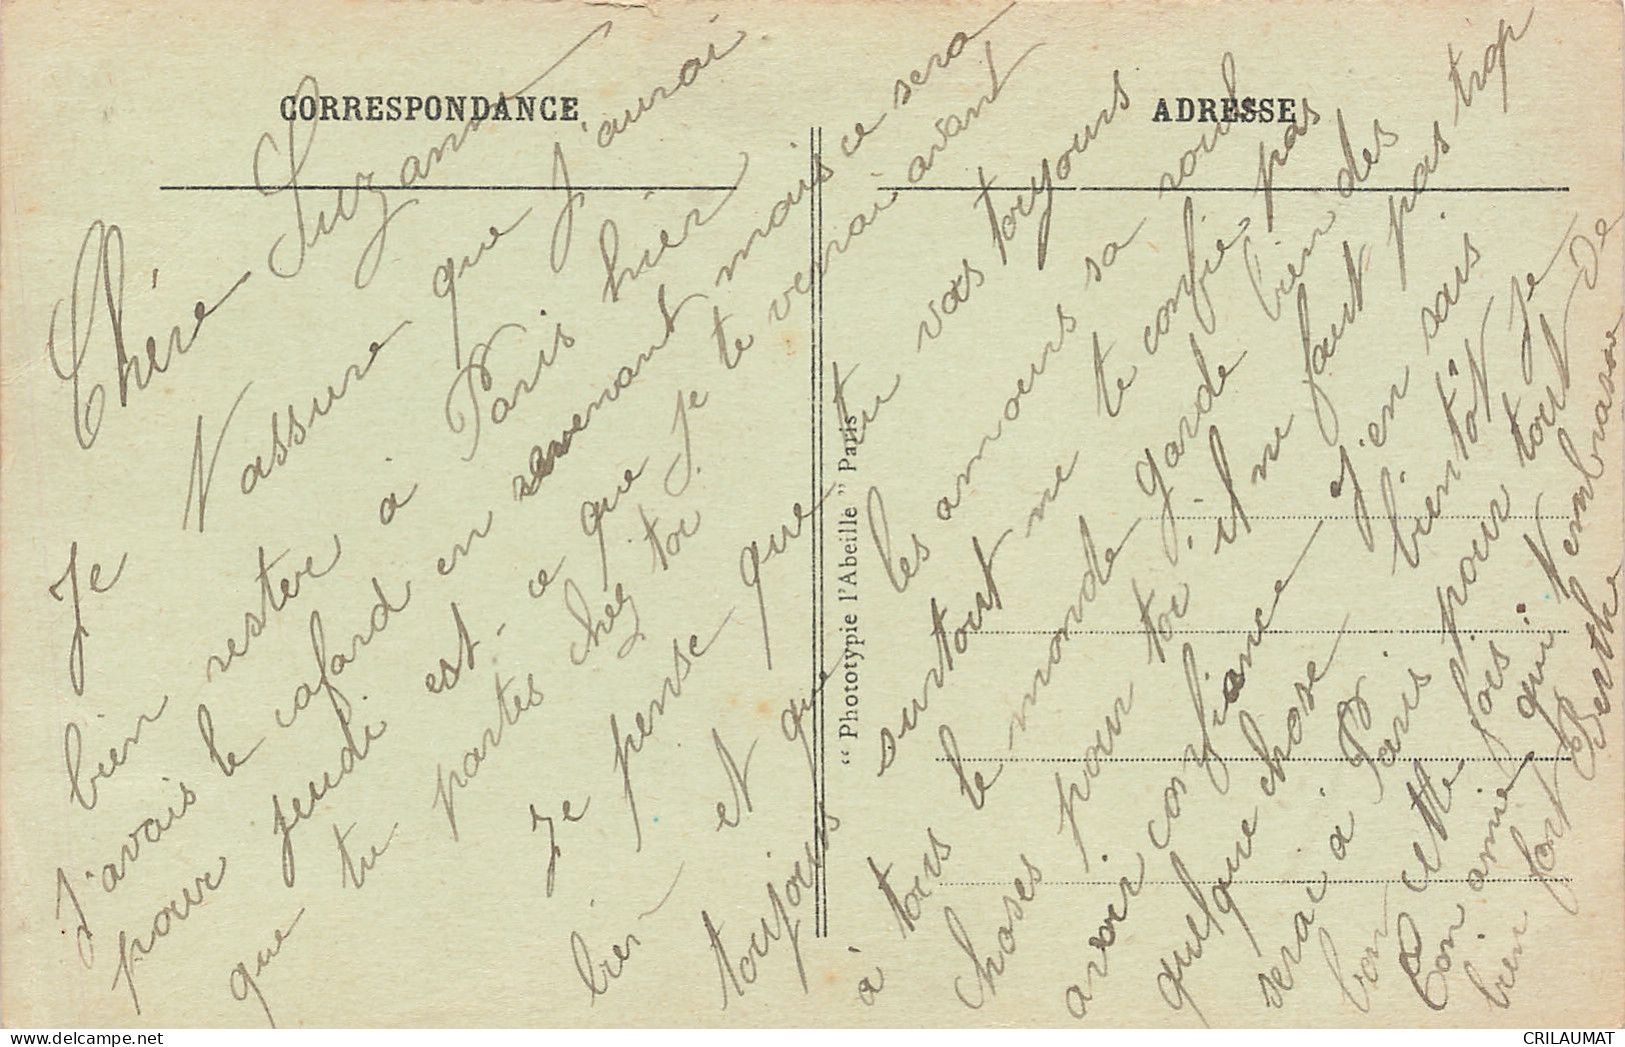 CORRESPONDANCE
ADRESSE
"Phototypie l'Abeille" Paris
Chère Suzanne
Je t'assure que j'aurai
bien rester à Paris hier
J'avais le cafard en revenant mais ce sera
pour jeudi est-ce que je te verrai avant
que tu partes chez toi
Je pense que tu vas toujours
bien et que les amours sa roule
toujours surtout ne te confie pas
à tous le monde garde bien des
choses pour toi il ne faut pas trop
avoir confiance j'en sais
quelque chose bientôt je
serai à Paris pour tout de
bon cette fois
Ton amie qui t'embrasse
bien fort Berthe
CRILAUMAT